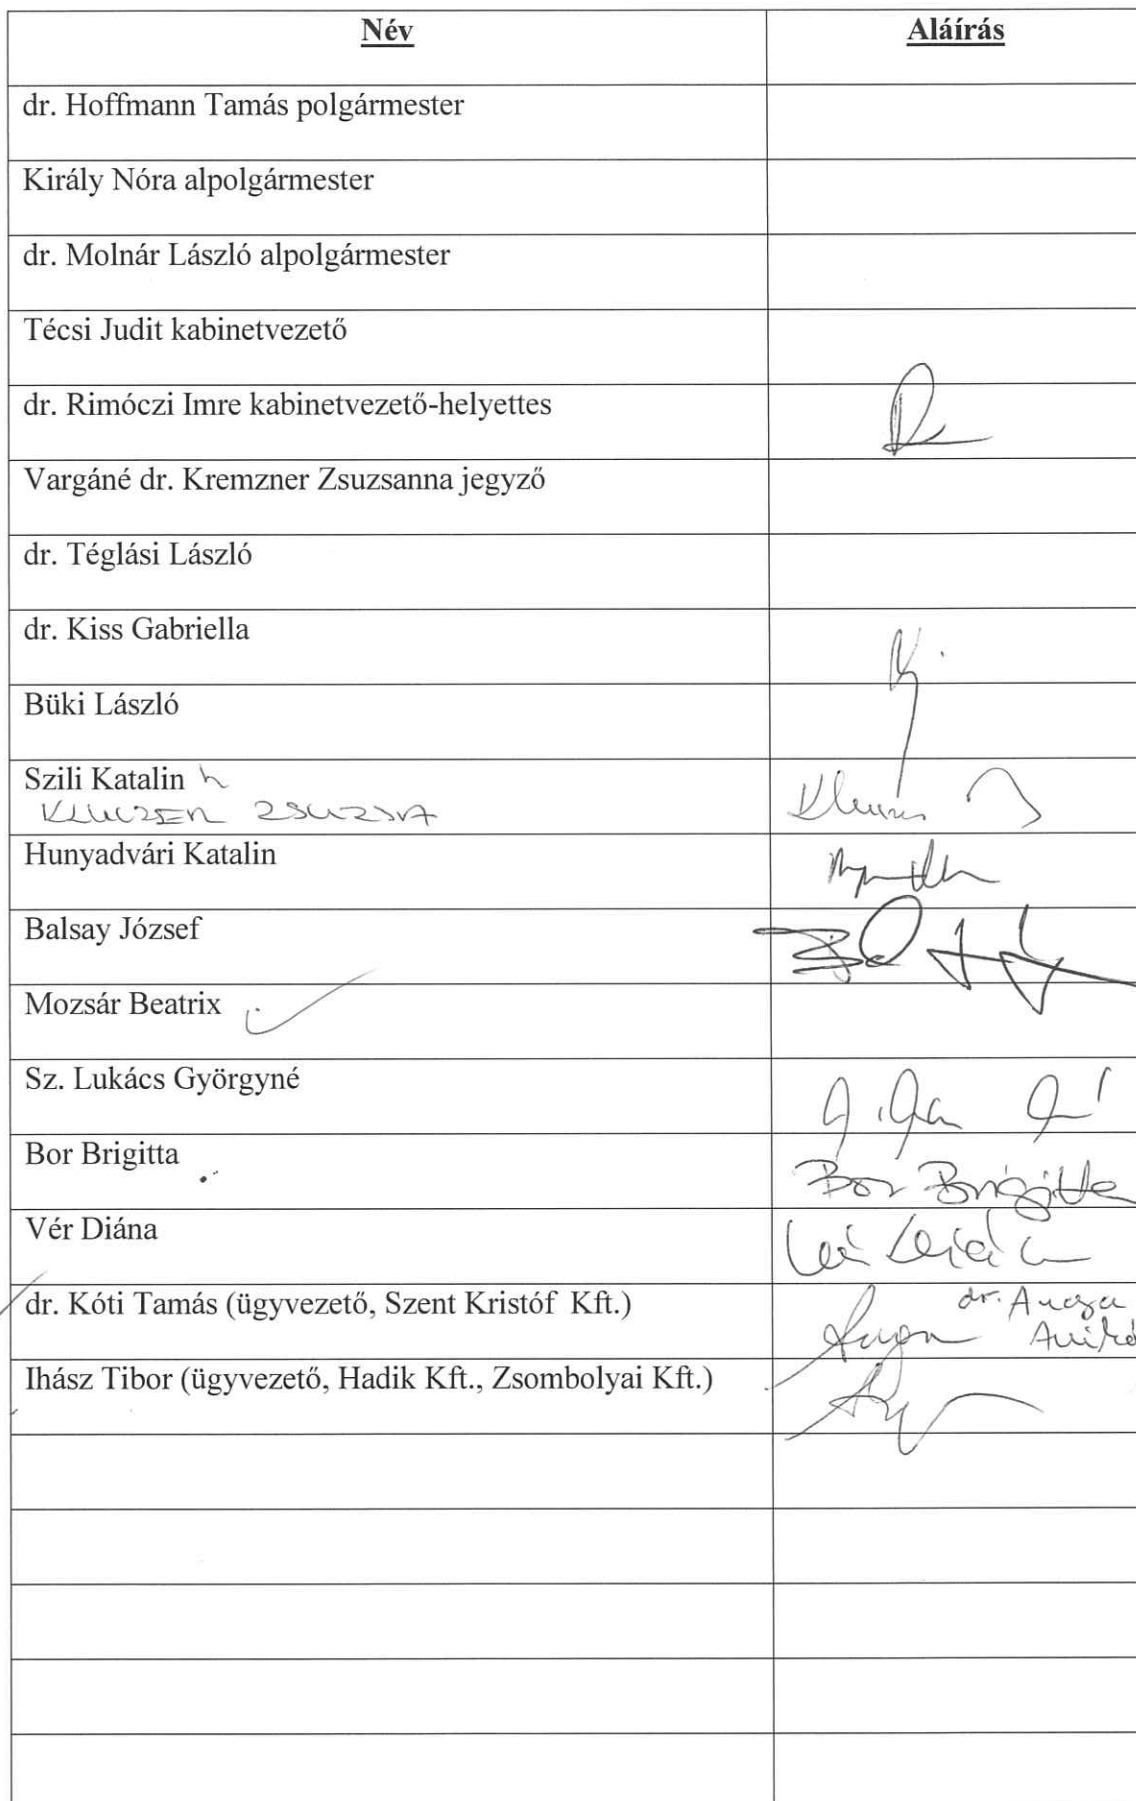 Név Aláírás
dr. Hoffmann Tamás polgármester
Király Nóra alpolgármester
dr. Molnár László alpolgármester
Técsi Judit kabinetvezető
dr. Rimóczi Imre kabinetvezető-helyettes
Vargáné dr. Kremzner Zsuzsanna jegyző
dr. Téglási László
dr. Kiss Gabriella
Büki László
Szili Katalin h
ZSUZSA
Hunyadvári Katalin
Balsay József
Mozsár Beatrix
Sz. Lukács Györgyné
Bor Brigitta Bor Brigitta
Vér Diána
dr. Kóti Tamás (ügyvezető, Szent Kristóf Kft.) dr.
Anikó
Ihász Tibor (ügyvezető, Hadik Kft., Zsombolyai Kft.)